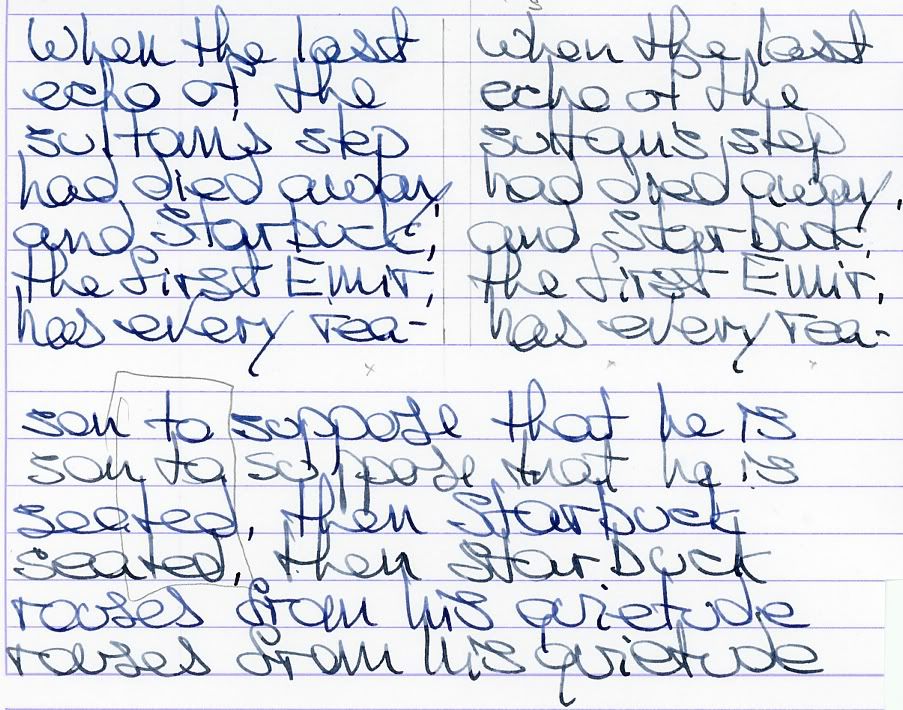 When the last
echo of the
sultan's step
had died away,
and Starbuck,
the first Emir,
has every rea-
when the last
echo of the
sultan's step
had died away,
and Starbuck,
the first Emir,
has every rea-
son to suppose that he is
son to suppose that he is
seated, then Starbuck
seated, then Starbuck
rouses from his quietude
rouses from his quietude